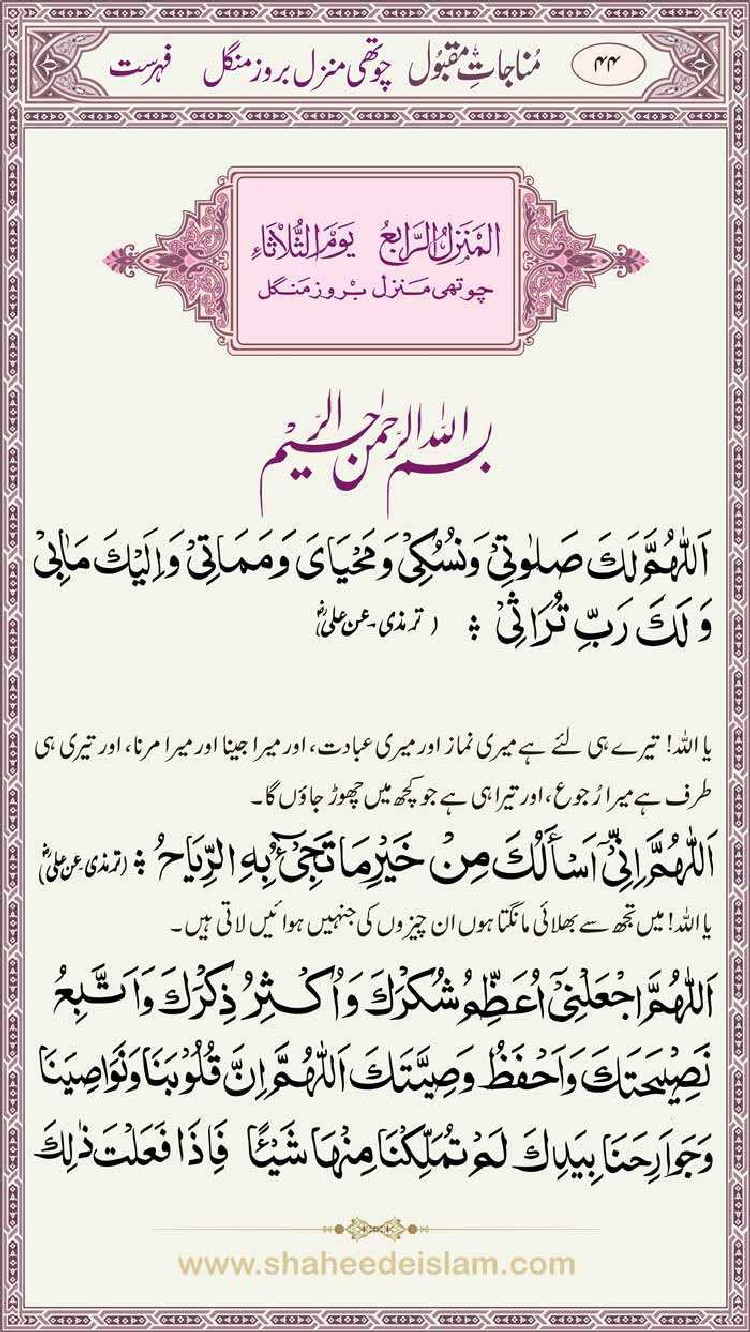 ۴۴ مُناجاتِ مقبُول چوتھی منزل بروز منگل فہرست
اَلْمَنْزِلُ الرَّابِعُ يَوْمَ الثُّلَاثَاءِ
چوتھی منزل بروز منگل
بسم اللہ الرحمن الرحیم
اَللّٰهُمَّ لَكَ صَلٰوتِيْ وَنُسُكِيْ وَمَحْيَايَ وَمَمَاتِيْ وَاِلَيْكَ مَاٰبِيْ
وَلَكَ رَبِّ تُرَاثِيْ ؞ (ترمذی۔عن علیؓ)
یا اللہ! تیرے ہی لئے ہے میری نماز اور میری عبادت، اور میرا جینا اور میرا مرنا، اور تیری ہی
طرف ہے میرا رُجوع، اور تیرا ہی ہے جو کچھ میں چھوڑ جاؤں گا۔
اَللّٰهُمَّ اِنِّيْٓ اَسْأَلُكَ مِنْ خَيْرِ مَا تَجِيْٓءُ بِهِ الرِّيَاحُ ؞ (ترمذی عن علیؓ)
یا اللہ! میں تجھ سے بھلائی مانگتا ہوں ان چیزوں کی جنہیں ہوائیں لاتی ہیں۔
اَللّٰهُمَّ اجْعَلْنِيْٓ اُعَظِّمُ شُكْرَكَ وَاُكْثِرُ ذِكْرَكَ وَاَتَّبِعُ
نَصِيْحَتَكَ وَاَحْفَظُ وَصِيَّتَكَ اَللّٰهُمَّ اِنَّ قُلُوْبَنَا وَنَوَاصِيَنَا
وَجَوَارِحَنَا بِيَدِكَ لَمْ تُمَلِّكْنَا مِنْهَا شَيْئًا فَاِذَا فَعَلْتَ ذٰلِكَ
www.shaheedeislam.com